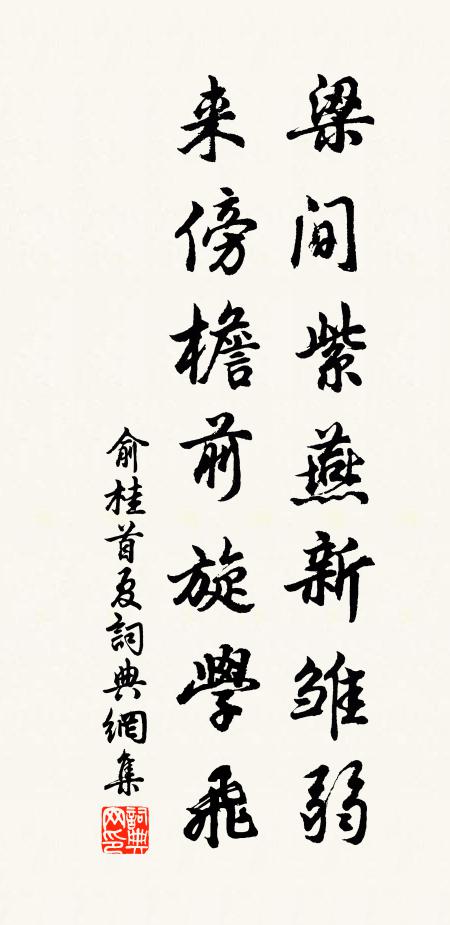 梁间紫燕新雏弱
来傍檐前旋學飛
俞桂首夏詞典網集
詞典网印